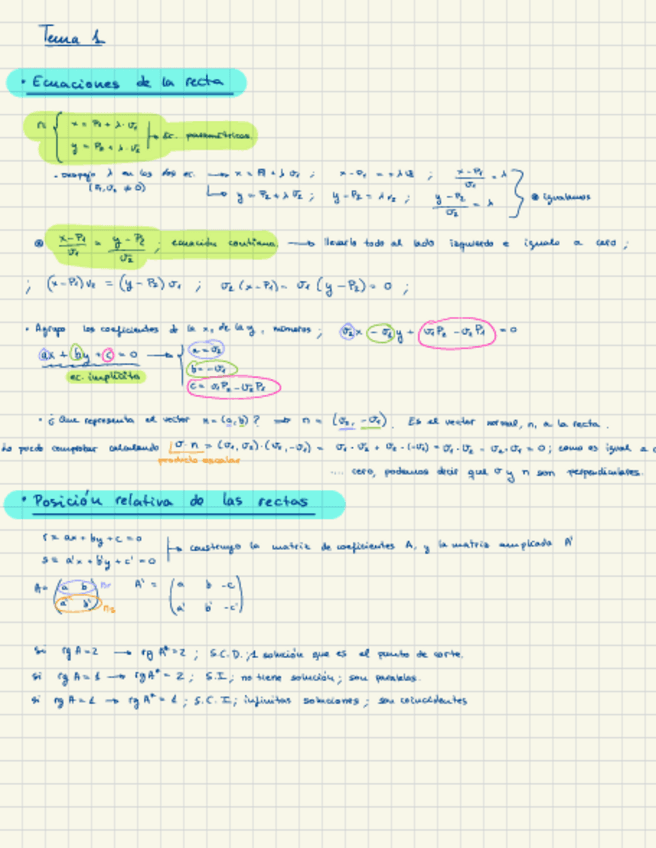 Tema 1
· Ecuaciones de la recta
r: { x = P₁ + λ·v₁
y = P₂ + λ·v₂ → Ec. paramétricas
- Despejo λ en las dos ec. → x = P₁ + λ v₁ ; x - P₁ = λ v₁ ; (x-P₁)/v₁ = λ
(v₁, v₂ ≠ 0) → y = P₂ + λ v₂ ; y - P₂ = λ v₂ ; (y-P₂)/v₂ = λ } ⊛ igualamos
⊛ (x-P₁)/v₁ = (y-P₂)/v₂ ; ecuación continua. → llevarlo todo al lado izquierdo e igualo a cero ;
; (x-P₁) v₂ = (y-P₂) v₁ ; v₂ (x-P₁) - v₁ (y-P₂) = 0 ;
· Agrupo los coeficientes de la x, de la y, números ; v₂x - v₁y + v₁P₂ - v₂P₁ = 0
ax + by + c = 0 → { a = v₂
b = -v₁
c = v₁P₂ - v₂P₁
ec. implícita
· ¿Que representa el vector n = (a, b)? ⇒ n = (v₂, -v₁). Es el vector normal, n, a la recta.
Lo puedo comprobar calculando v·n = (v₁, v₂)·(v₂, -v₁) = v₁·v₂ + v₂·(-v₁) = v₁·v₂ - v₂·v₁ = 0 ; como es igual a
producto escalar
.... cero, podemos decir que v y n son perpendiculares.
· Posición relativa de las rectas
r ≡ ax + by + c = 0
s ≡ a'x + b'y + c' = 0 → construyo la matriz de coeficientes A, y la matriz ampliada A'
A = (a b) nr A' = (a b -c)
(a' b') ns (a' b' -c')
si rg A = 2 → rg A* = 2 ; S.C.D. ; 1 solución que es el punto de corte.
si rg A = 1 → rg A* = 2 ; S.I ; no tiene solución ; son paralelas.
si rg A = 1 → rg A* = 1 ; S.C.I ; infinitas soluciones ; son coincidentes